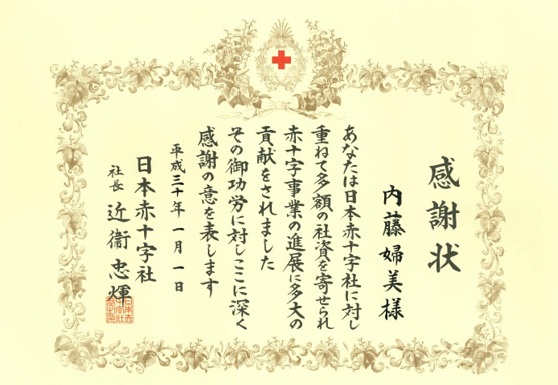 感謝状
内藤婦美様
あなたは日本赤十字社に対し
重ねて多額の社資を寄せられ
赤十字事業の進展に多大の
貢献をされました
その御功労に対しここに深く
感謝の意を表します
平成三十年一月一日
日本赤十字社
社長 近衞忠煇